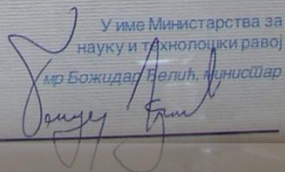 У име Министарства за
науку и технолошки равој
мр Божидар Ђелић, министар